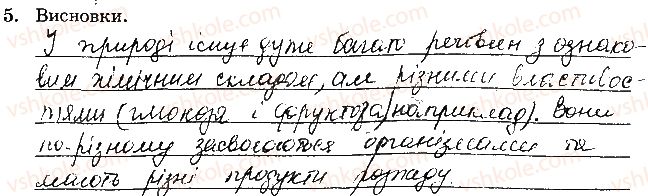 5. Висновки.
У природі існує дуже багато речовин з однако-
вим хімічним складом, але різними властивос-
тями (глюкоза і фруктоза, наприклад). Вони
по-різному засвоюються організмами та
мають різні продукти розпаду.